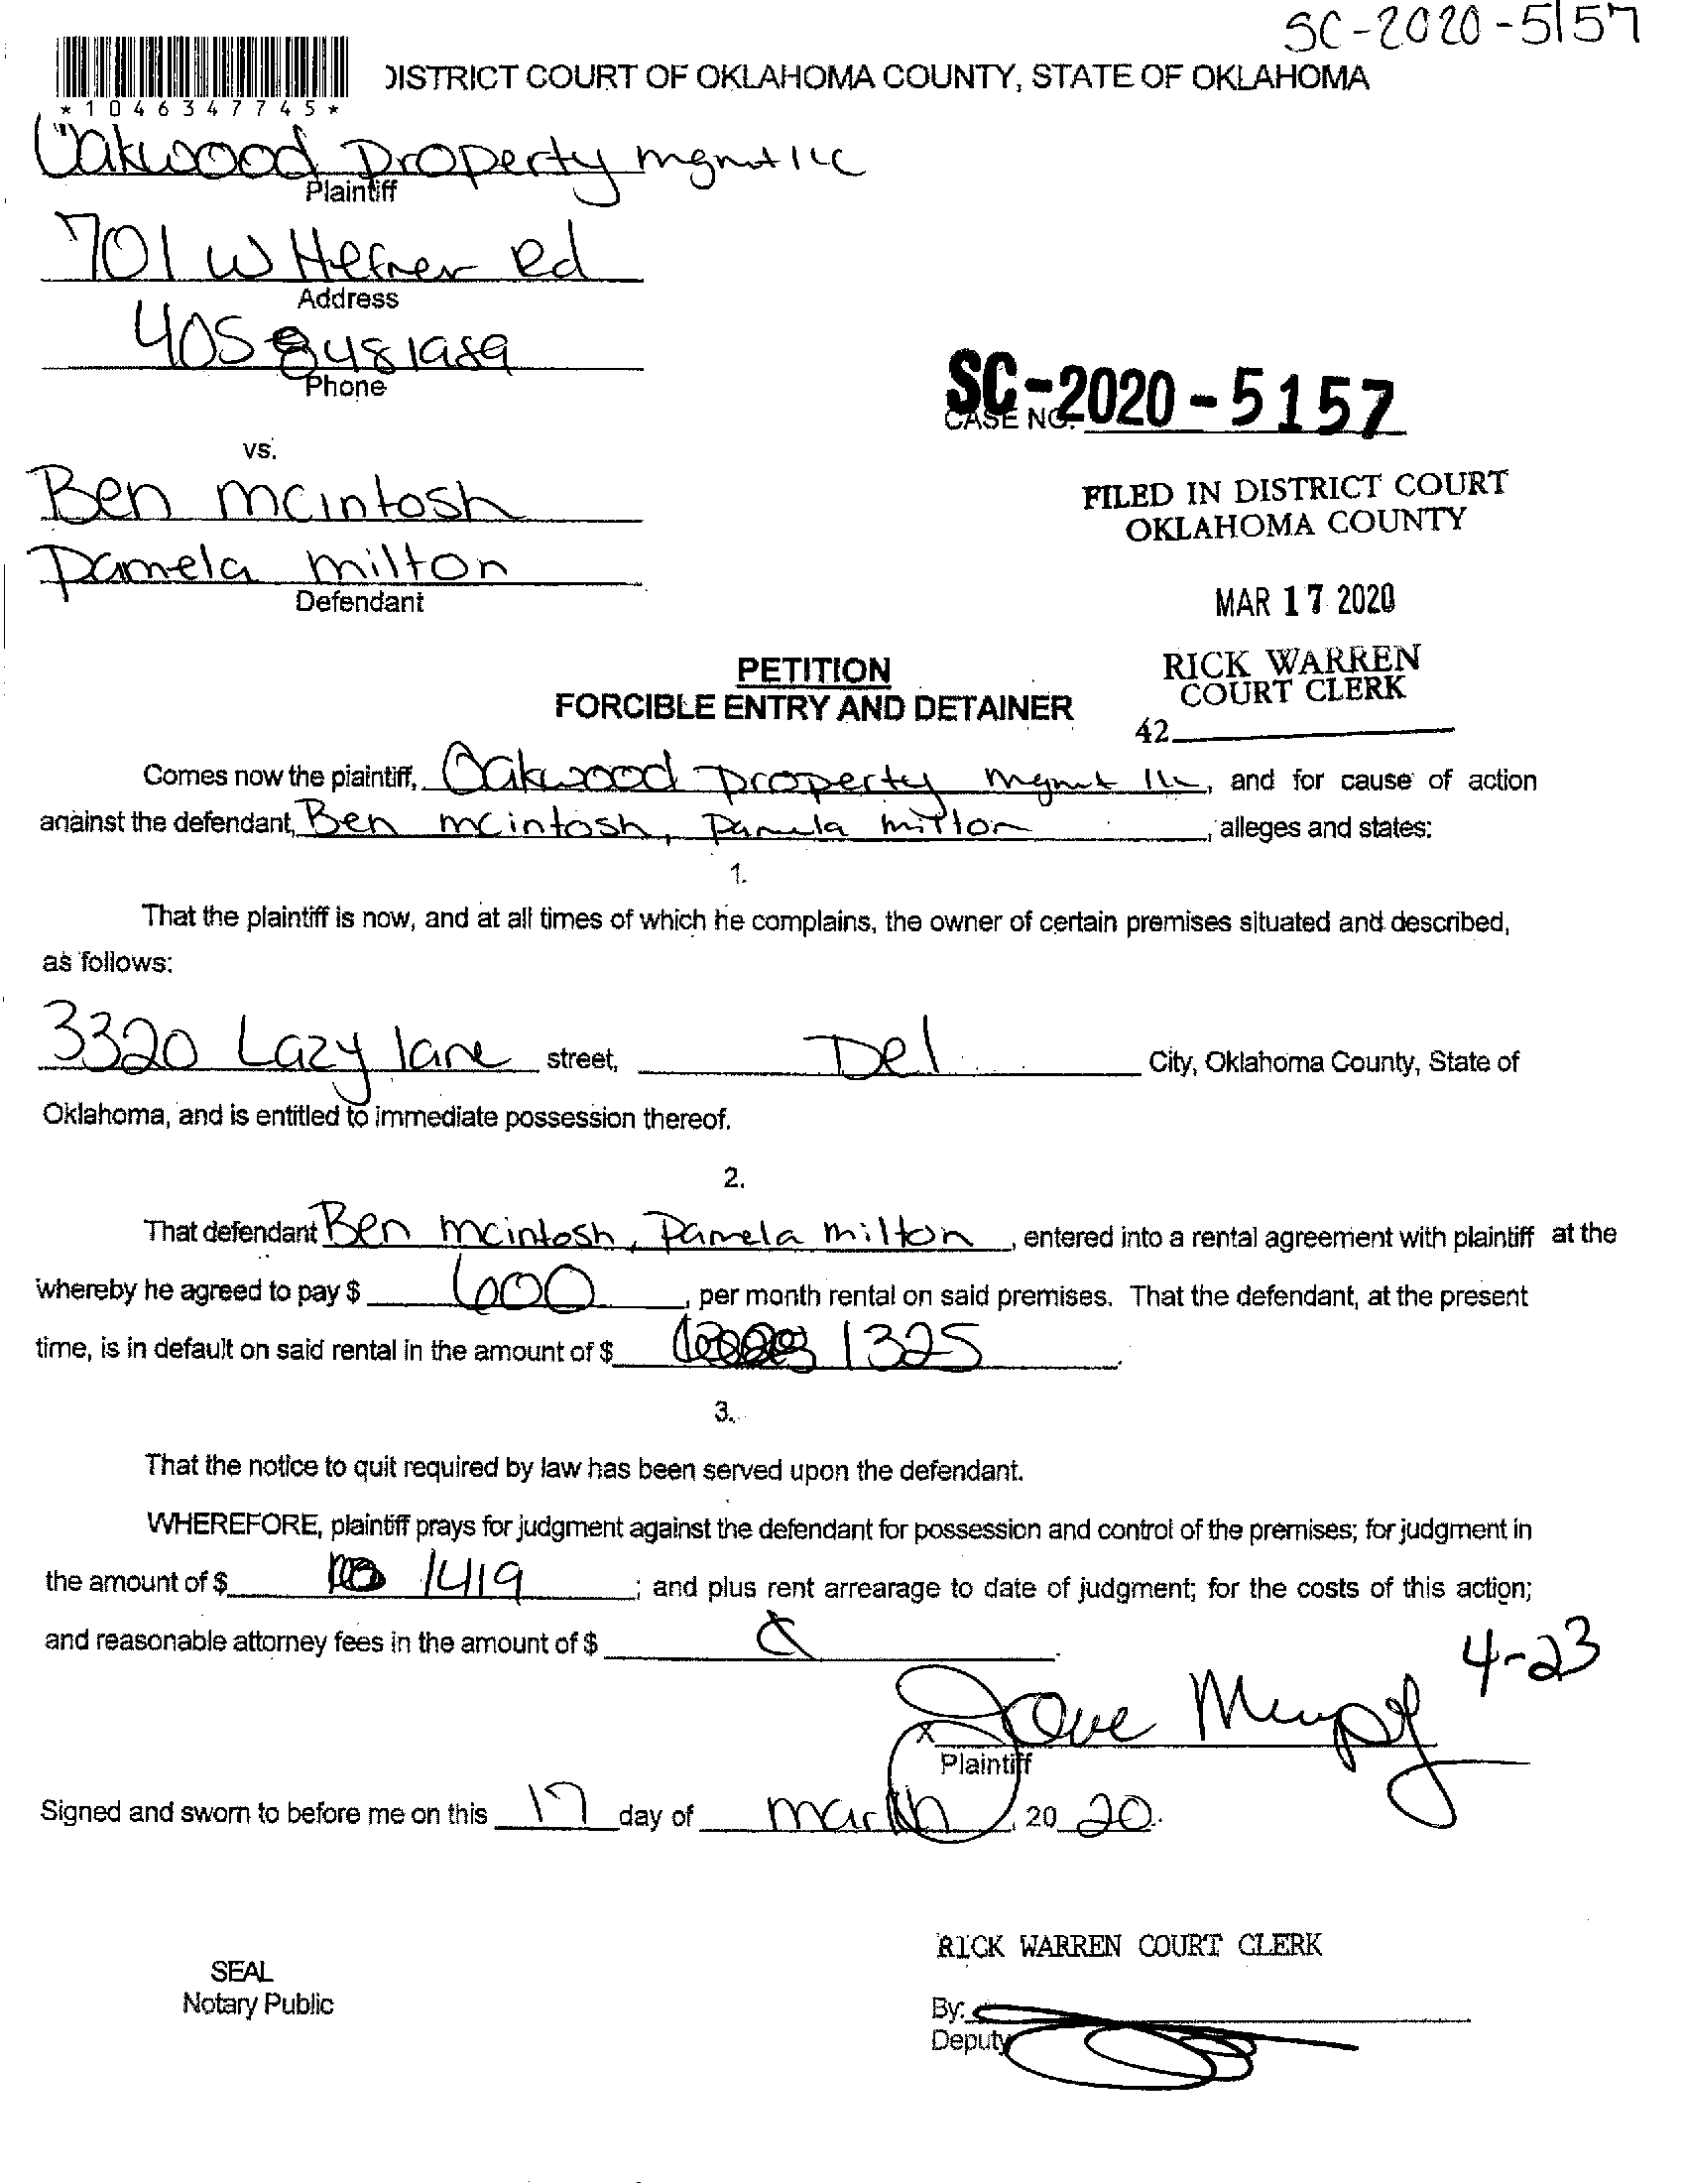 SC-2020-5157
DISTRICT COURT OF OKLAHOMA COUNTY, STATE OF OKLAHOMA
*1046347745*
Oakwood Property mgmt llc
Plaintiff
701 W Hefner Rd
Address
405 848 1989
Phone
SC-2020-5157
CASE NO.
vs.
Ben mcintosh
Pamela milton
Defendant
FILED IN DISTRICT COURT
OKLAHOMA COUNTY
MAR 17 2020
RICK WARREN
COURT CLERK
42
PETITION
FORCIBLE ENTRY AND DETAINER
Comes now the plaintiff, Oakwood property mgmt llc, and for cause of action
against the defendant, Ben mcintosh, Pamela milton, alleges and states:
1.
That the plaintiff is now, and at all times of which he complains, the owner of certain premises situated and described,
as follows:
3320 Lazy lane street, Del City, Oklahoma County, State of
Oklahoma, and is entitled to immediate possession thereof.
2.
That defendant Ben mcintosh, Pamela milton, entered into a rental agreement with plaintiff at the
whereby he agreed to pay $ 600, per month rental on said premises. That the defendant, at the present
time, is in default on said rental in the amount of $ 1325.
3.
That the notice to quit required by law has been served upon the defendant.
WHEREFORE, plaintiff prays for judgment against the defendant for possession and control of the premises; for judgment in
the amount of $ 1419; and plus rent arrearage to date of judgment; for the costs of this action;
and reasonable attorney fees in the amount of $
4-23
X
Plaintiff
Signed and sworn to before me on this 17 day of march, 20 20.
RICK WARREN COURT CLERK
SEAL
Notary Public
By:
Deputy